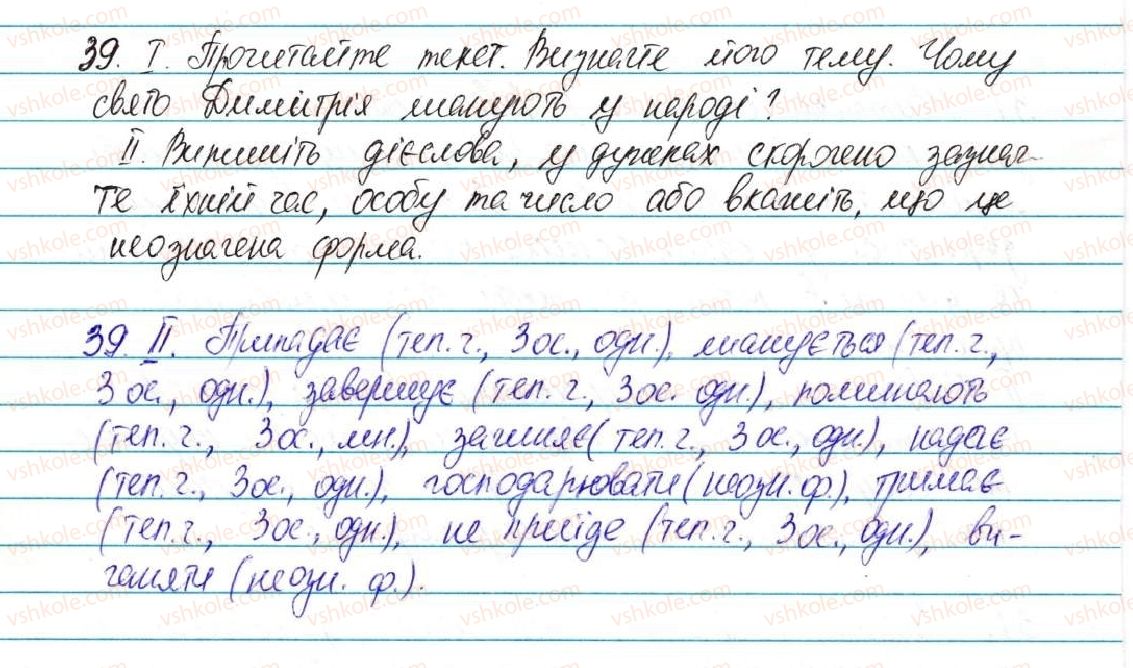 39. I. Прочитайте текст. Визначте його тему. Чому
свято Димитрія шанують у народі?
II. Випишіть дієслова, у дужках скорочено зазнач-
те їхній час, особу та число або вкажіть, що це
неозначена форма.
39. II. Припадає (теп. ч., 3 ос., одн.), шанується (теп. ч.,
3 ос., одн.), завершує (теп. ч., 3 ос. одн.), поминають
(теп. ч., 3 ос., мн.), зачиняє (теп. ч., 3 ос., одн.), надає
(теп. ч., 3 ос., одн.), господарювати (неозн. ф.), тримає
(теп. ч., 3 ос., одн.), не приїде (теп. ч., 3 ос., одн.), ви-
ганяти (неозн. ф.).